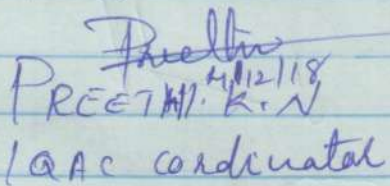 Preethi
4/12/18
PREETHI. K. N
IQAC cordinator